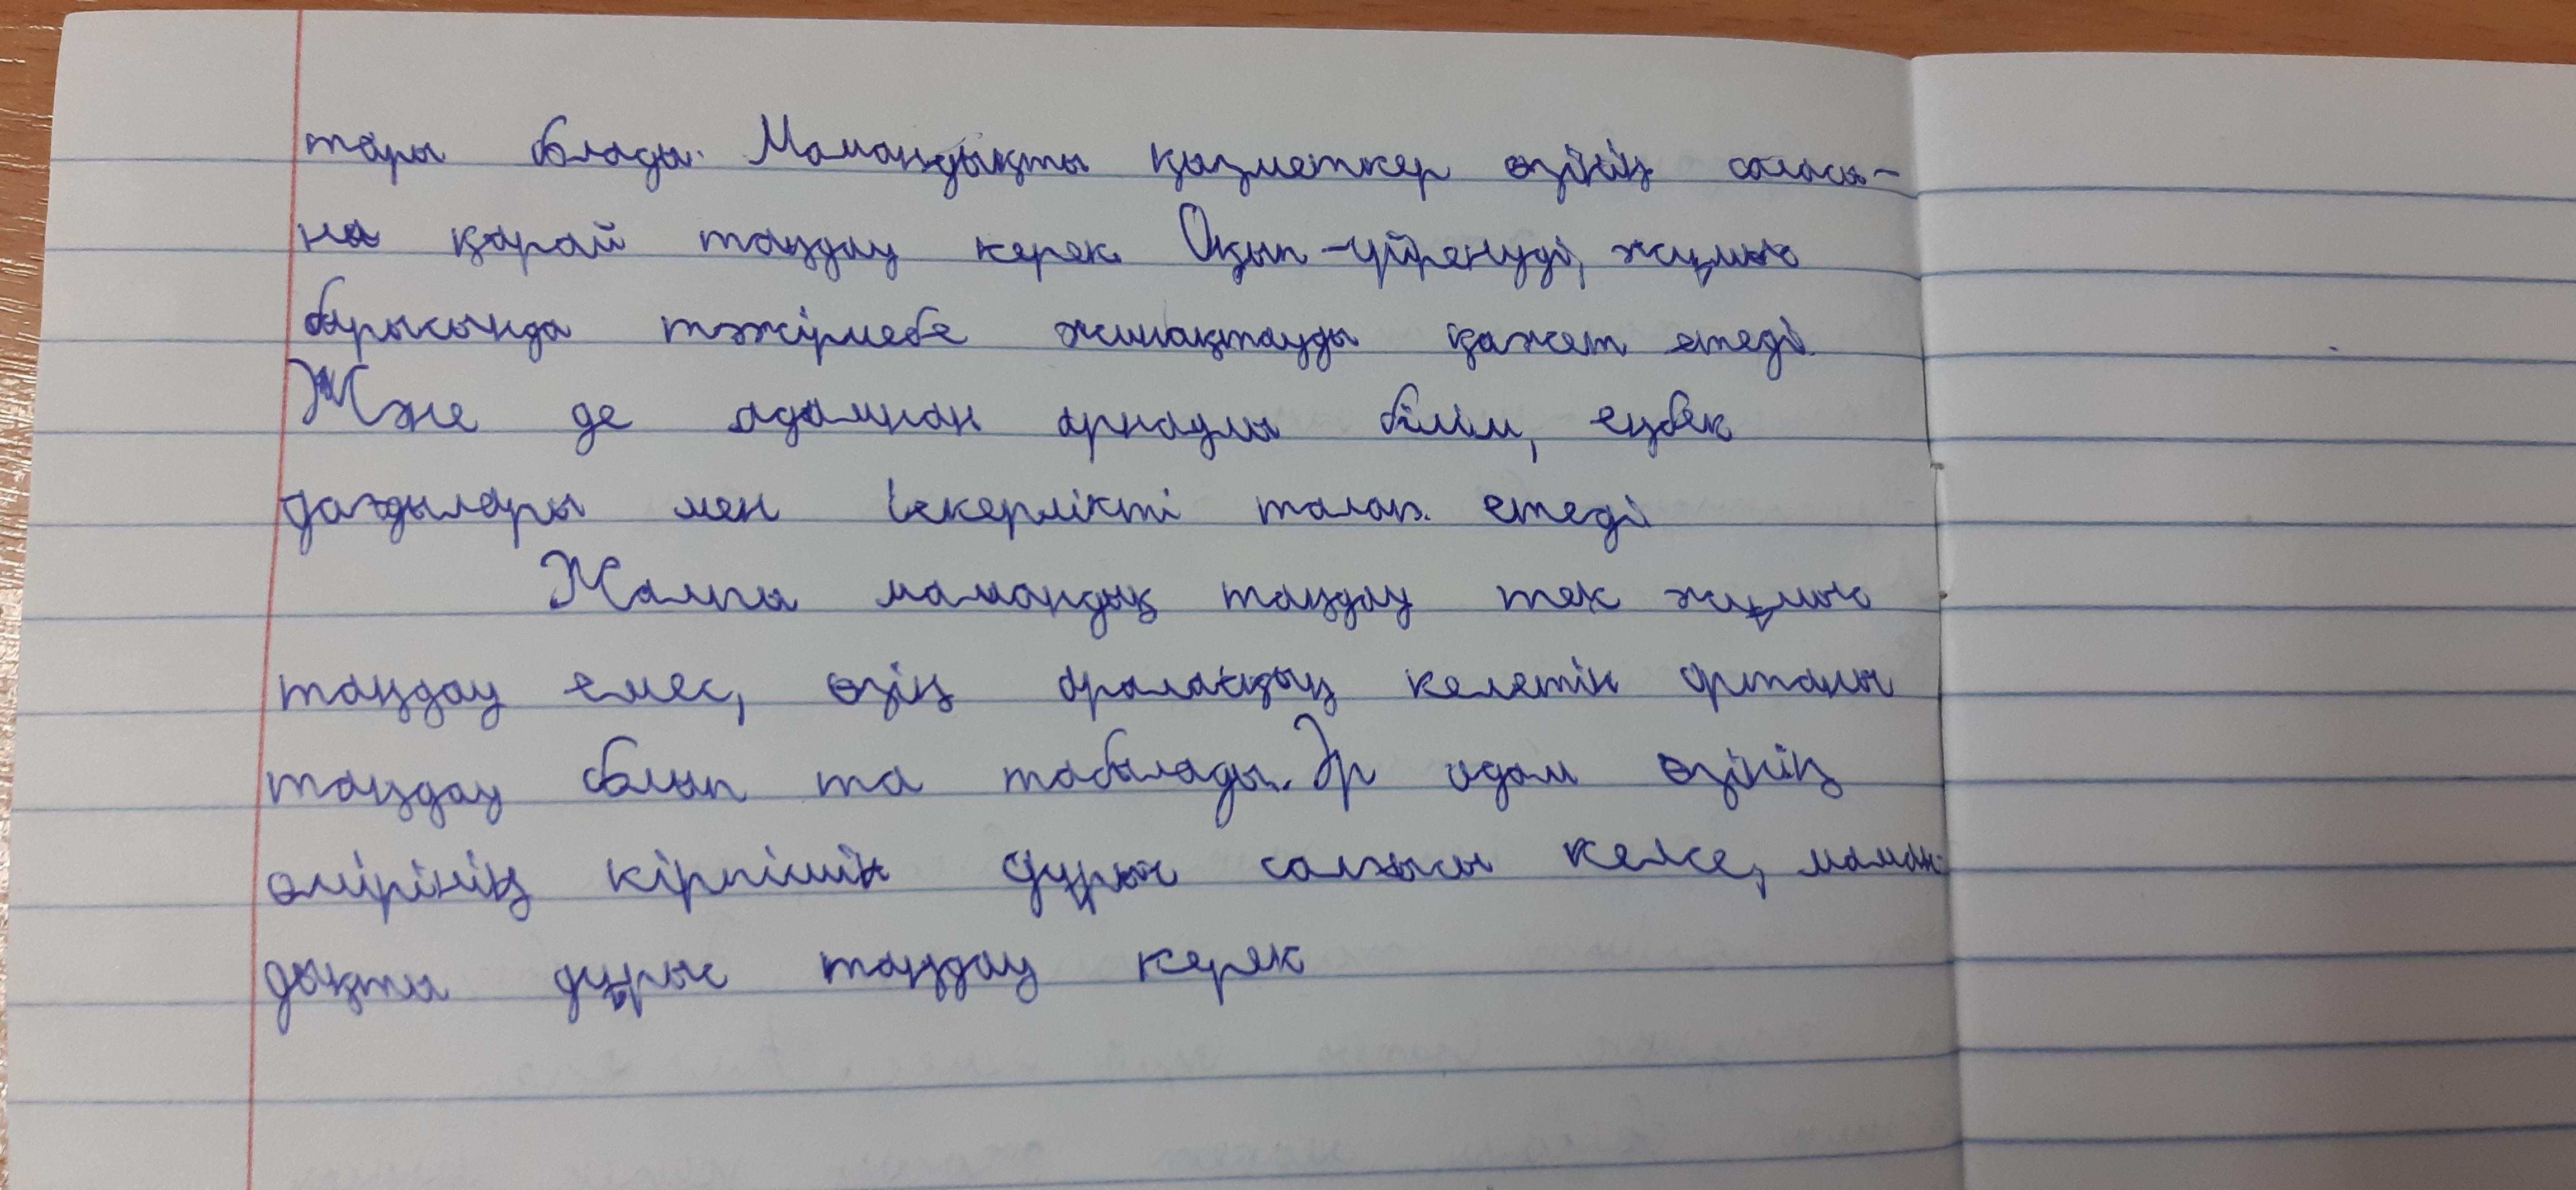 тары болады. Мамандықты қызметкер өзінің саласы-
на қарай таңдау керек. Оқып-үйренуді, жұмыс
барысында тәжірмебе жинақтауды қажет етеді.
Және де адамнан арнаулы білім, еңбек
дағдылары мен іскерлікті талап етеді
Жалпы мамандық таңдау тек жұмыс
таңдау емес, өзің араласқың келетін ортаны
таңдау болып та табылады. Әр адам өзінің
өмірінің кірпішін дұрыс салғысы келсе, маман-
дықты дұрыс таңдау керек